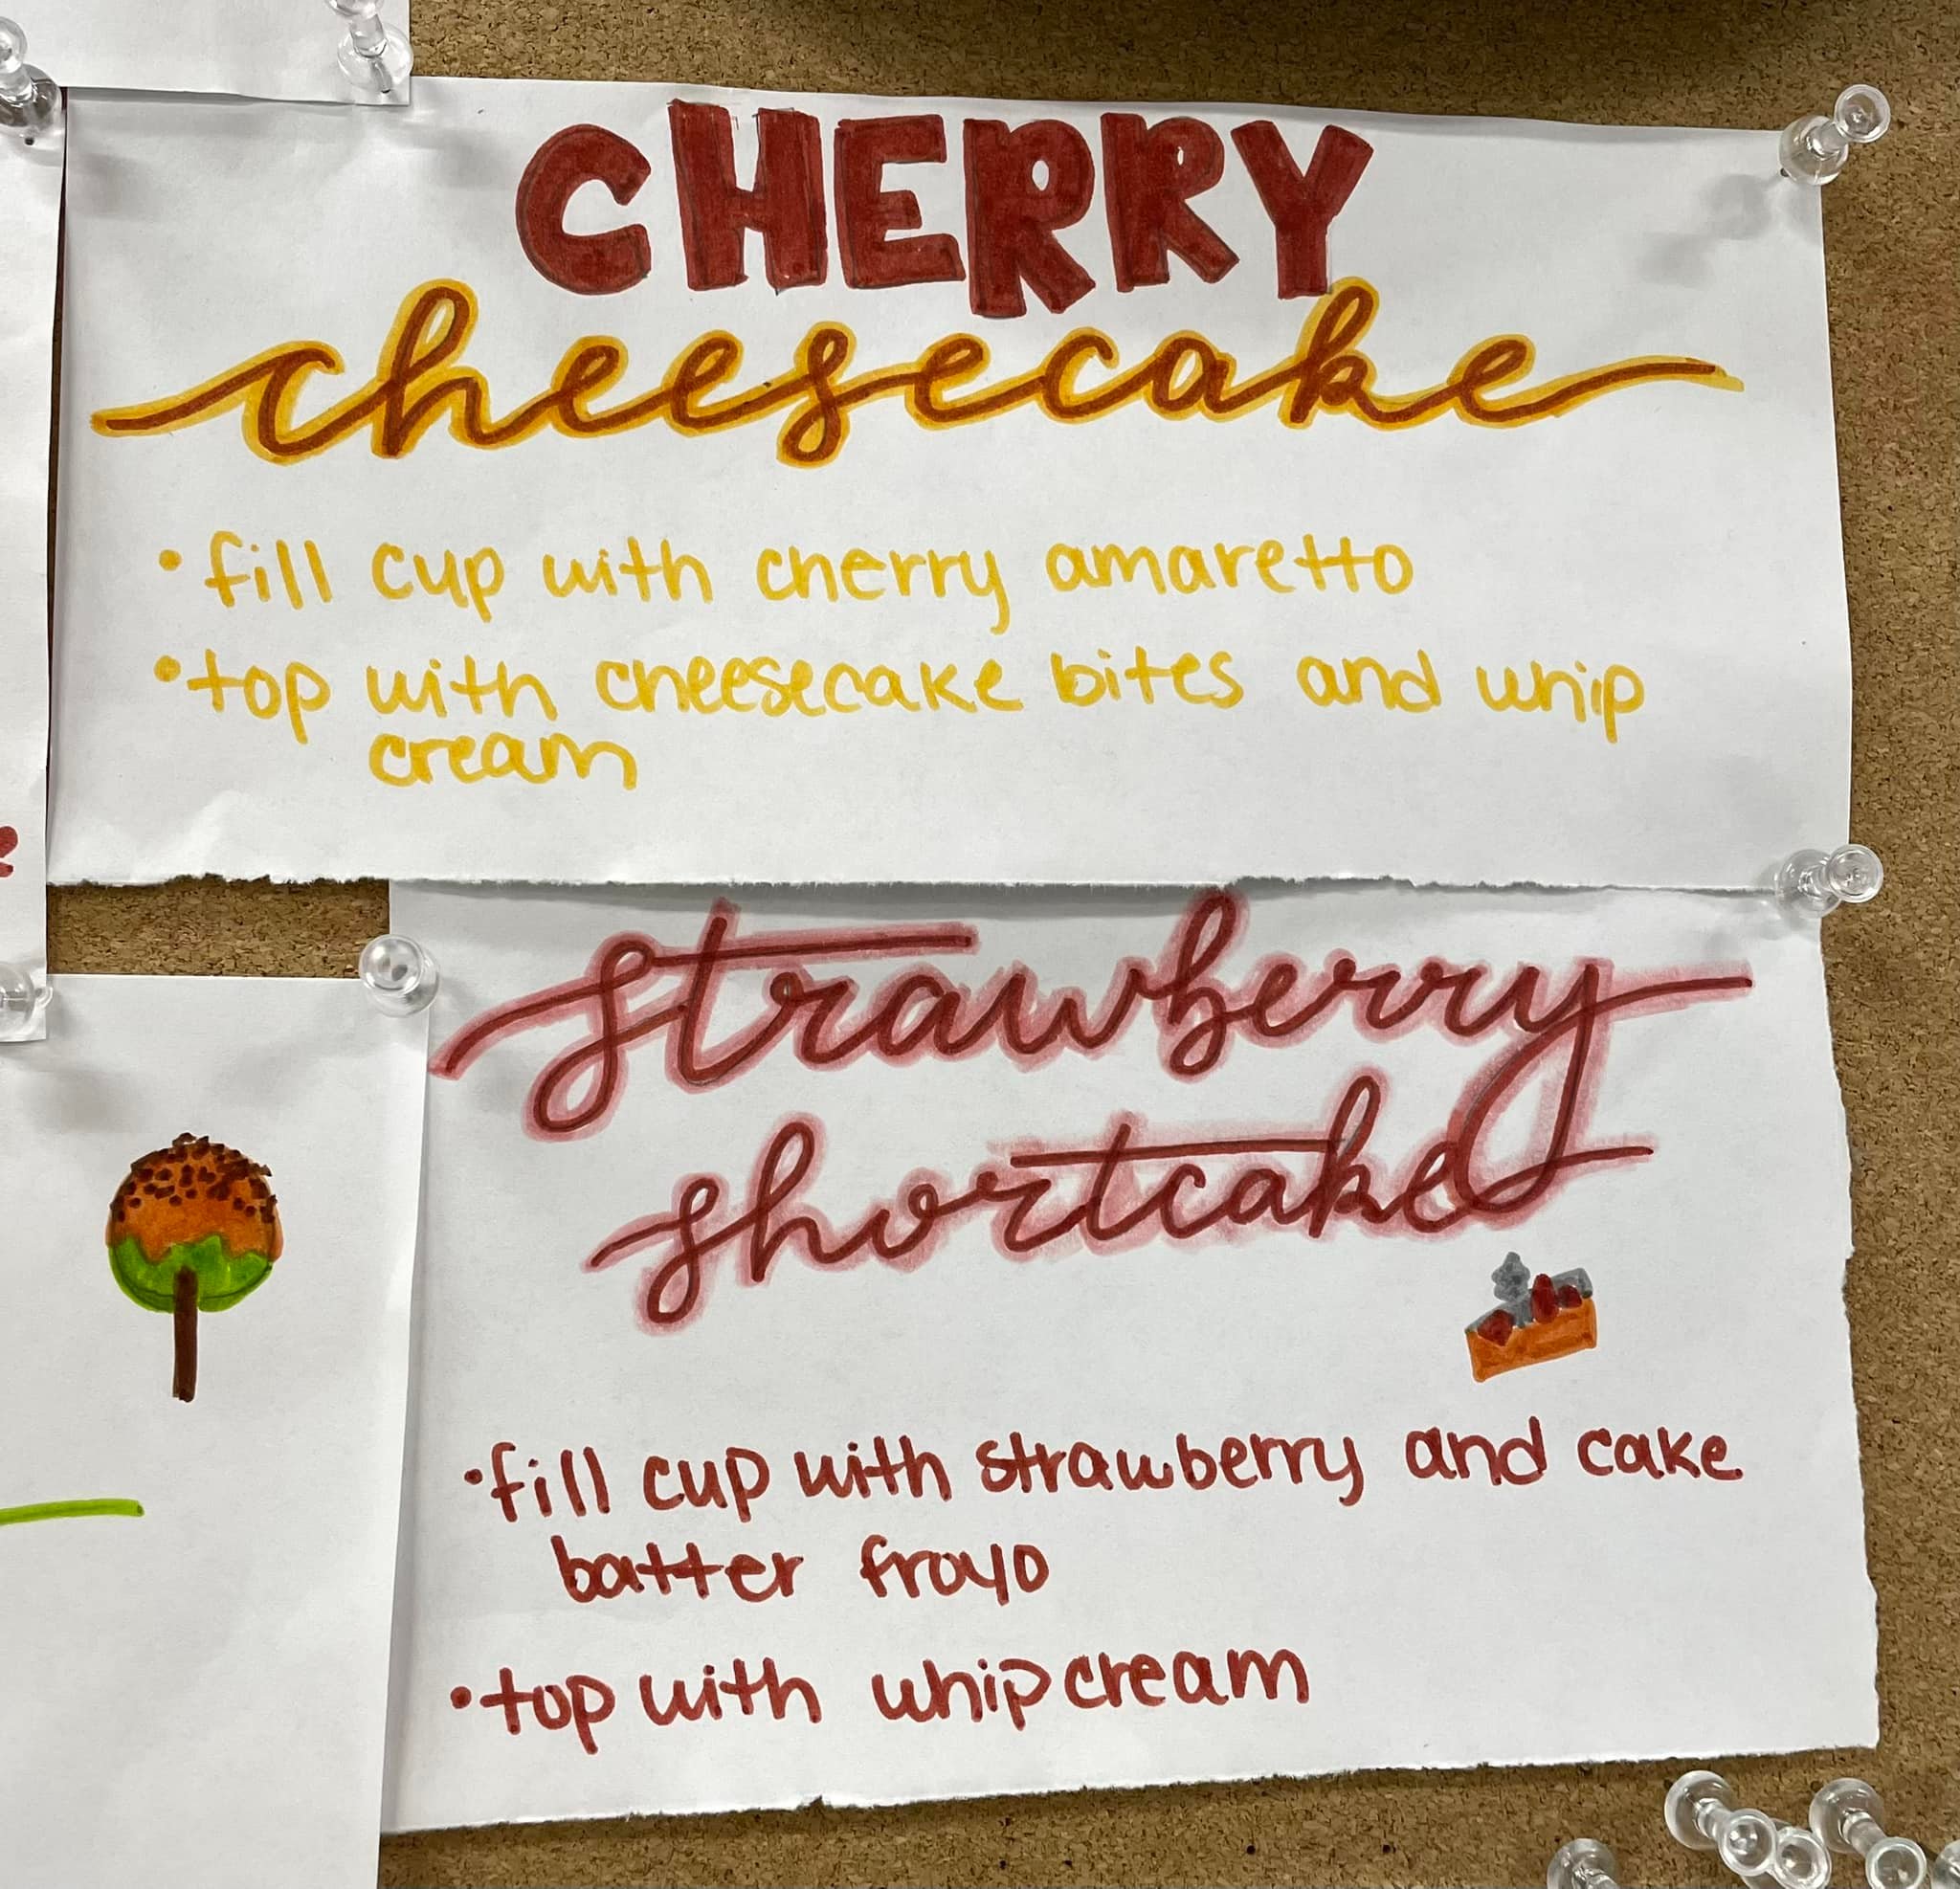 CHERRY
cheesecake
• fill cup with cherry amaretto
• top with cheesecake bites and whip
cream
strawberry
shortcake
• fill cup with strawberry and cake
batter froyo
• top with whip cream